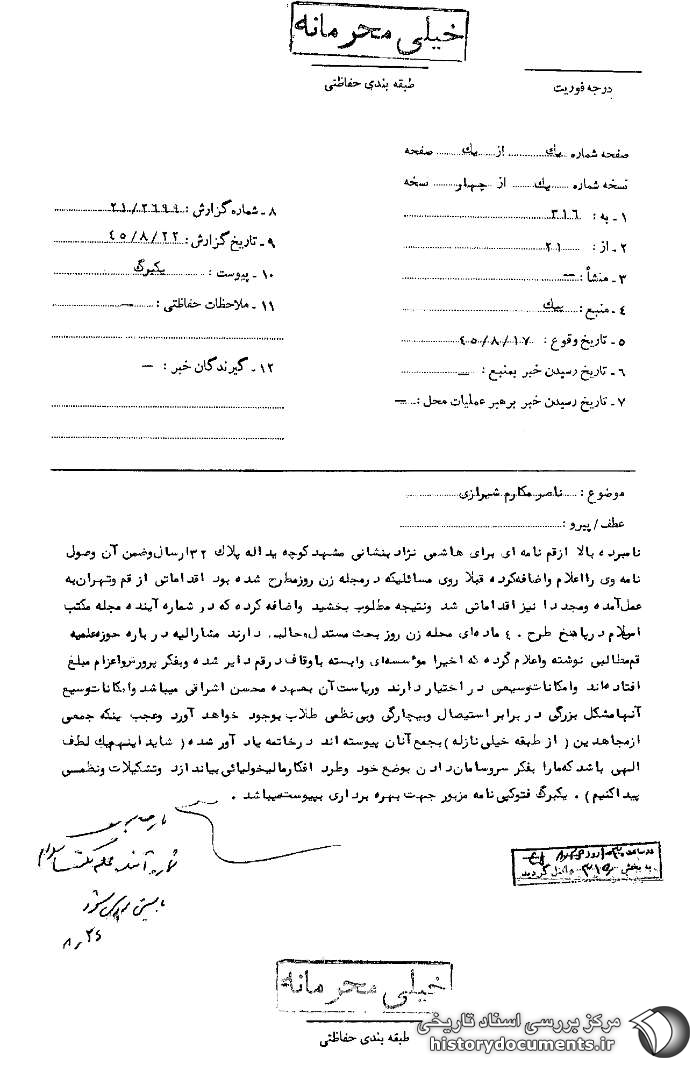 خیلی محرمانه
طبقه بندی حفاظتی
درجه فوریت
صفحه شماره یک از یک صفحه
نسخه شماره یک از چهار سخه
۱ـ به : ۳۱۶
۲ـ از : ۲۱
۳ـ منشأ : —
۴ـ منبع : پیک
۵ـ تاریخ وقوع : ۴۵/۸/۱۷
۶ـ تاریخ رسیدن خبر بمنبع : —
۷ـ تاریخ رسیدن خبر برهبر عملیات محل : —
۸ـ شماره گزارش : ۲۱/۲۶۹۹
۹ـ تاریخ گزارش : ۴۵/۸/۲۲
۱۰ـ پیوست : یکبرگ
۱۱ـ ملاحظات حفاظتی : —
۱۲ـ گیرندگان خبر : —
موضوع : ناصر مکارم شیرازی
عطف/ پیرو :
نامبرده بالا ازقم نامه ای برای هاشمی نژاد بنشانی مشهد کوچه یداله پلاک ۳۲ ارسال وضمن آن وصول
نامه وی رااعلام واضافه کرده قبلا روی مسائلیکه درمجله زن روزمطرح شده بود اقداماتی از قم وتهران به
عمل آمده ومجددا نیز اقداماتی شد ونتیجه مطلوب بخشید واضافه کرده که در شماره آینده مجله مکتب
اسلام درپاسخ طرح ۴۰ ماده ای مجله زن روز بحث مستدل وجالبی دارند مشارالیه درباره حوزه علمیه
قم مطالبی نوشته واعلام کرده که اخیرا مؤسسه ای وابسته باوقاف درقم دایر شده وبفکر پرورش واعزام مبلغ
افتاده اند وامکانات وسیعی در اختیار دارند وریاست آن بعهده محسن اشراقی میباشد وامکانات وسیع
آنها مشکل بزرگی در برابر استیصال وبیچارگی وبی نظمی طلاب بوجود خواهد آورد وعجب ینکه جمعی
ازمجاهدین ( از طبقه خیلی نازله ) بجمع آنان پیوسته اند درخاتمه یاد آور شده ( شاید اینهم یک لطف
الهی باشد که مارا بفکر سروسامان دادن بوضع خود وطرد افکار مالیخولیائی بیاندازد وتشکیلات ونظمی
پیدا کنیم ) . یکبرگ فتوکپی نامه مزبور جهت بهره برداری بپیوست میباشد .
شماره آینده مجله مکتب اسلام
بایستی بررسی شود
۸/۲۶
به بخش ۳۱۵ داخل گردید
خیلی محرمانه
طبقه بندی حفاظتی
مرکز بررسی اسناد تاریخی
historydocuments.ir